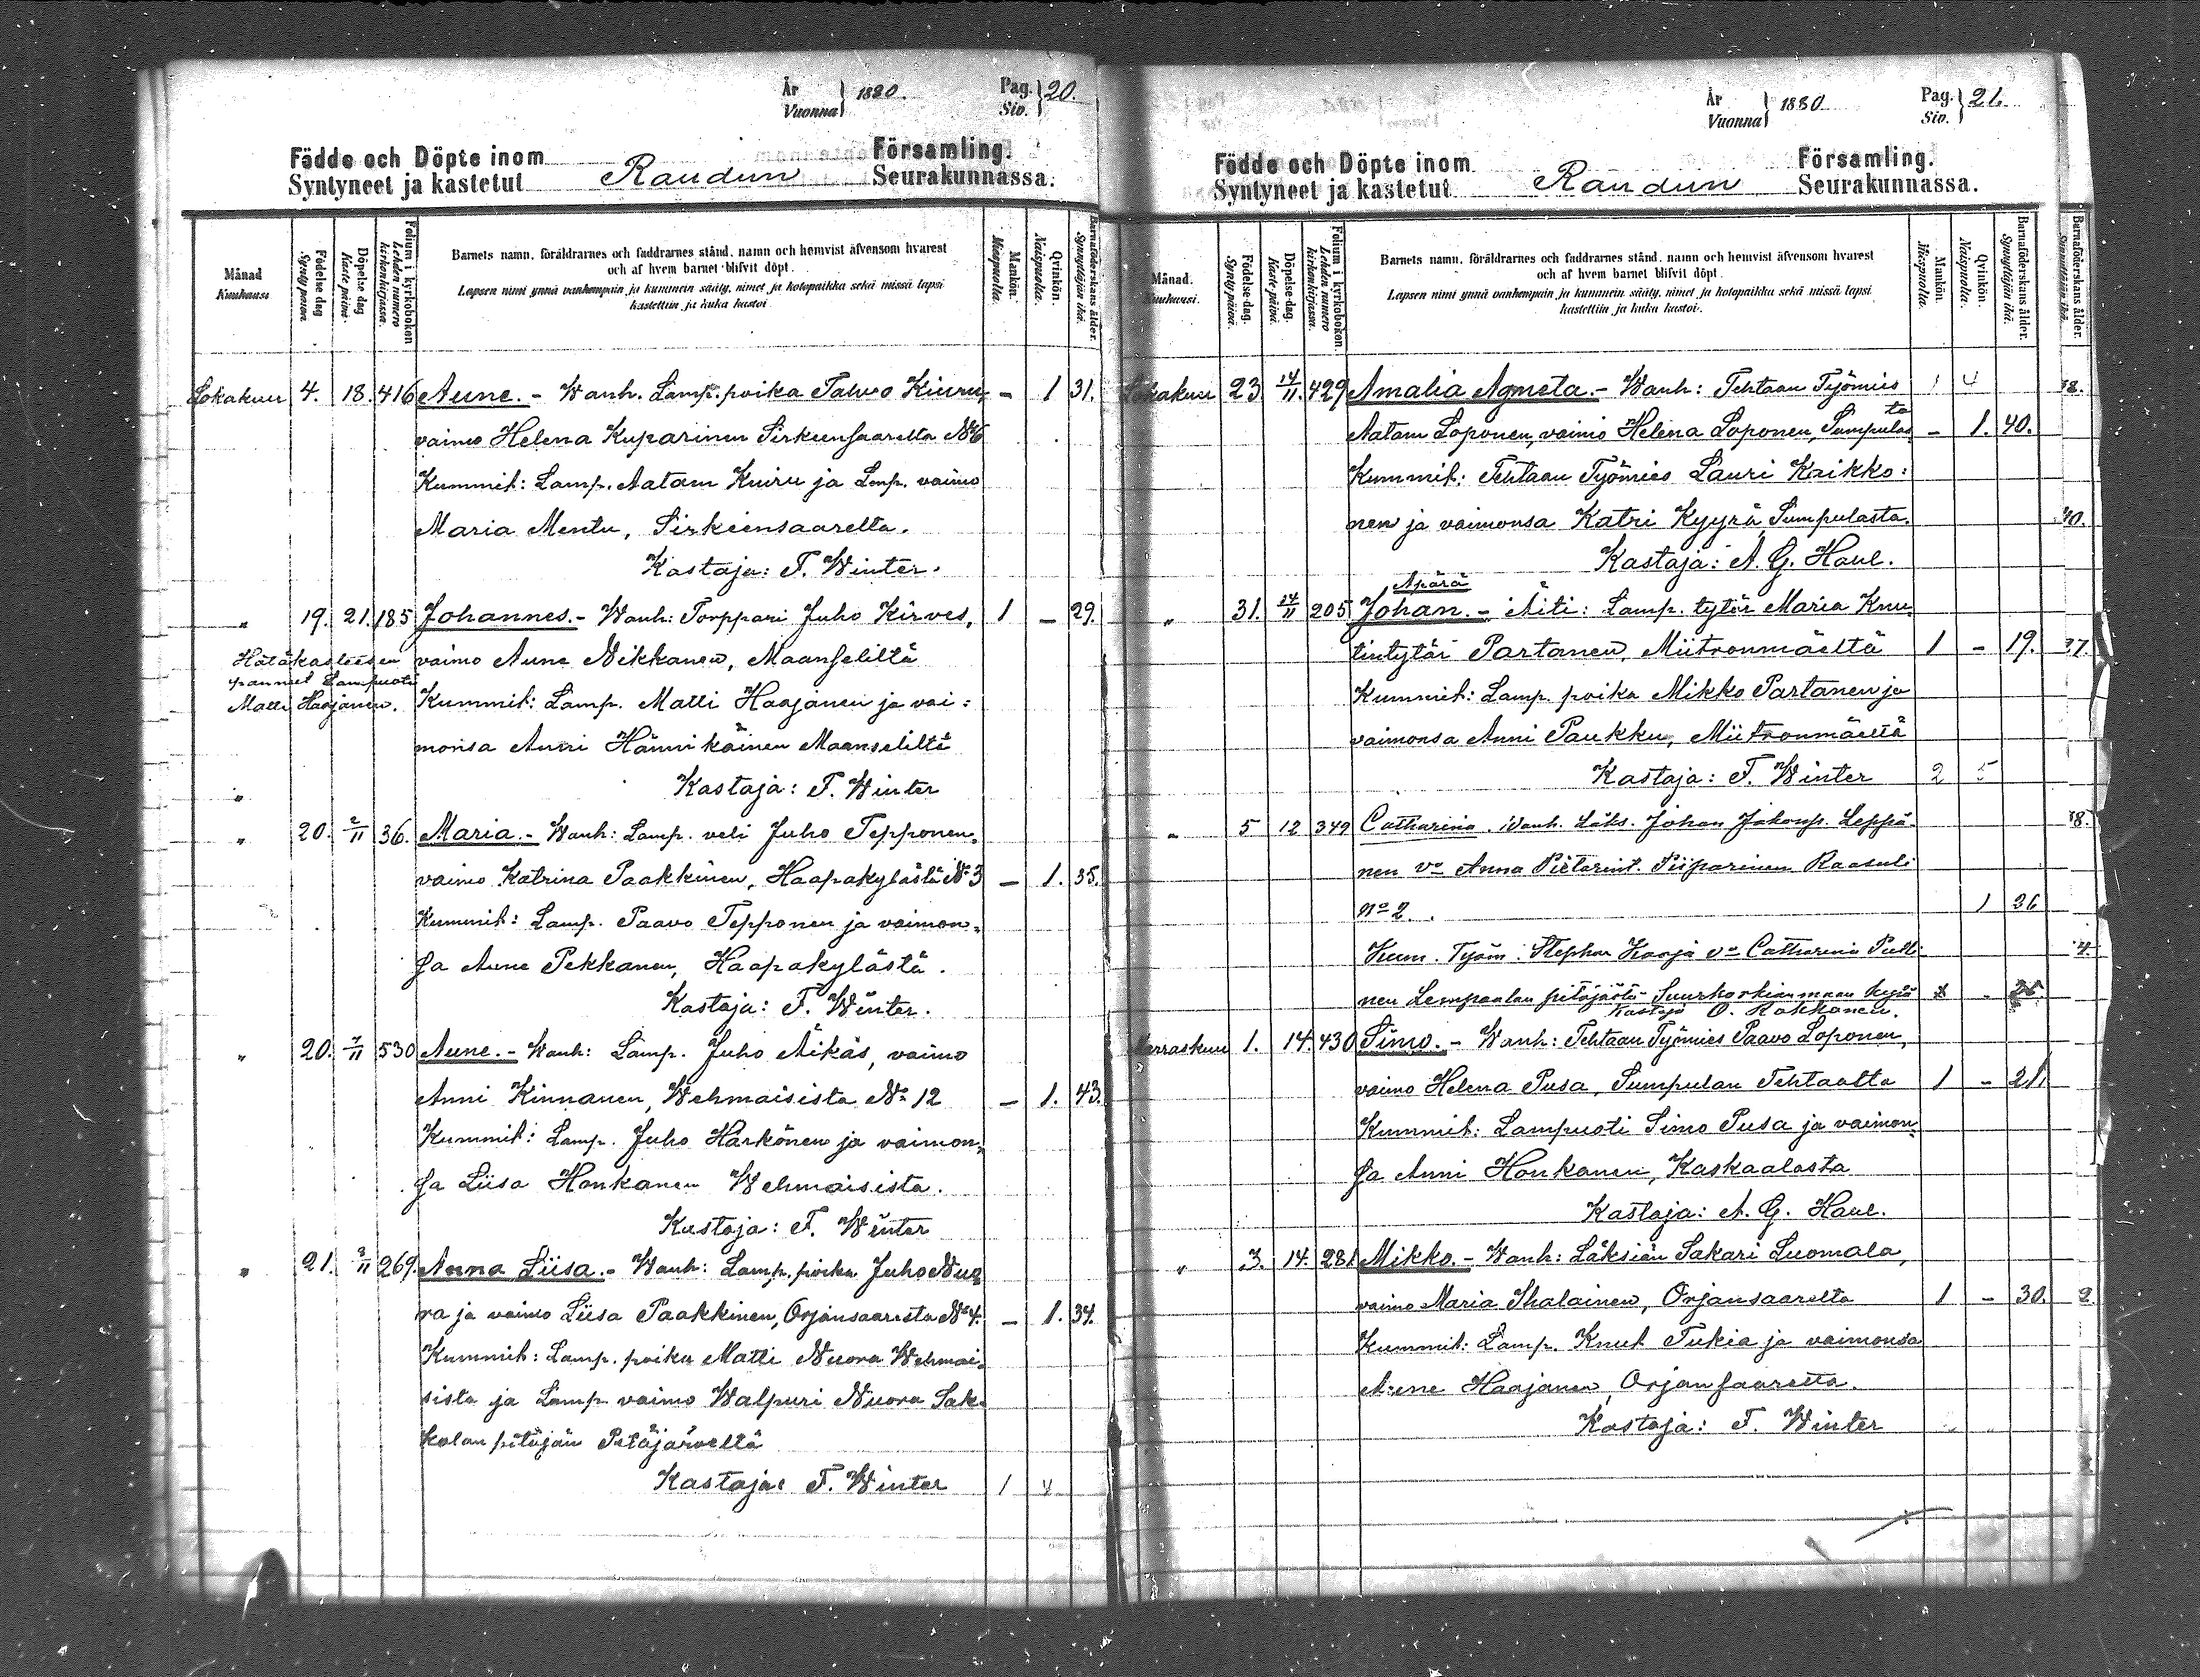 År
Vuonna } 1880.
Pag.
Siv. } 20.
Födde och Döpte inom Församling.
Syntyneet ja kastetut Raudun Seurakunnassa.
Månad
Kuukausi
Födelse dag
Synty päivä.
Döpelse dag
Kaste päivä.
Folium i kyrkoboken
Lehden numero
kirkonkirjassa.
Barnets namn, föräldrarnes och faddrarnes stånd, namn och hemvist äfvensom hvarest
och af hvem barnet blifvit döpt.
Lapsen nimi ynnä vanhempain ja kummein sääty, nimet ja kotopaikka sekä missä lapsi
kastettiin ja kuka kastoi.
Mankön.
Miespuolta.
Qvinkön.
Naispuolta.
Barnaföderskans ålder.
Synnyttäjän ikä.
Lokakuu 4. 18. 416 Aune. - Wanh. Lamp. poika Paavo Kiuru, - 1 31.
vaimo Helena Kuparinen Sirkiensaarelta No 6
Kummit: Lamp. Aatam Kiuru ja Lmp. vaimo
Maria Mentu, Sirkiensaarelta.
Kastaja: F. Winter.
" 19. 21. 185 Johannes. - Wanh: Torppari Juho Kirves, 1 - 29.
Hätäkasteesen vaimo Aune Nikkanen, Maanseliltä
pannut Lampuoti
Matti Haajanen. Kummit: Lamp. Matti Haajanen ja vai=
monsa Anni Hännikäinen Maanseliltä
Kastaja: F. Winter
"
" 20. 2/11 36. Maria. - Wanh: Lamp. veli Juho Tepponen,
vaimo Katrina Paakkinen, Haapakylästä No 3 - 1. 35.
Kummit: Lamp. Paavo Tepponen ja vaimon=
sa Aune Pekkanen, Haapakylästä.
Kastaja: F. Winter.
" 20. 7/11 530 Aune. - Wanh: Lamp. Juho Äikäs, vaimo
Anni Kinnanen, Wehmaisista No 12 - 1. 43.
Kummit: Lamp. Juho Härkönen ja vaimon=
sa Liisa Honkanen Wehmaisista.
Kastaja: F. Winter
" 21. 3/11 269. Anna Liisa. - Wanh: Lamp. poika Juho Nuo
ra ja vaimo Liisa Paakkinen, Orjansaaresta No 4. - 1. 34.
Kummit: Lamp. poika Matti Nuora Wehmai=
sista ja Lamp. vaimo Walpuri Nuora Sak=
kolan pitäjän Petäjärveltä
Kastaja: F. Winter 1 4
År
Vuonna } 1880
Pag.
Siv. } 21.
Födde och Döpte inom Församling.
Syntyneet ja kastetut Raudun Seurakunnassa.
Månad.
Kuukausi.
Födelse-dag.
Synty päivä.
Döpelse-dag.
Kaste päivä.
Folium i kyrkoboken.
Lehden numero
kirkonkirjassa.
Barnets namn, föräldrarnes och faddrarnes stånd, namn och hemvist äfvensom hvarest
och af hvem barnet blifvit döpt.
Lapsen nimi ynnä vanhempain ja kummein sääty, nimet ja kotopaikka sekä missä lapsi
kastettiin ja kuka kastoi.
Mankön.
Miespuolta.
Qvinkön.
Naispuolta.
Barnaföderskans ålder.
Synnyttäjän ikä.
Barnaföderskans ålder.
Lokakuu 23 14/11. 429 Amalia Agneta. - Wanh: Tehtaan Työmies 1 4
Aatam Loponen, vaimo Helena Loponen, Sumpulasta - 1. 40.
Kummit: Tehtaan Työmies Lauri Kaikko:
nen ja vaimonsa Katri Kyyrä, Sumpulasta.
Kastaja: A. G. Haul.
Äpärä
" 31. 14/11 205 Johan. - Äiti: Lamp. tytär Maria Knu
tintytär Partanen, Miitronmäeltä 1 - 19.
Kummit: Lamp. poika Mikko Partanen ja
vaimonsa Anni Paukku, Miitronmäeltä
Kastaja: F. Winter 2 5
" 5 12 349 Catharina. Wanh. Läks. Johan Jakomp. Leppä
nen vo Anna Pietarint. Piiparinen Raasuli
No 2. 1 26
Kum. Työm. Stephan Karja vo Catharina Pulli
nen Lempaalan pitäjästä Suurhorkianmaan kylä
Kastaja O. Kokkonen.
Marraskuu 1. 14. 430 Simo. - Wanh: Tehtaan Työmies Paavo Loponen,
vaimo Helena Pusa, Sumpulan Tehtaalta 1 - 21.
Kummit: Lampuoti Simo Pusa ja vaimon=
sa Anni Honkanen, Kaskaalasta
Kastaja: A. G. Haul.
" 3. 14. 281 Mikko. - Wanh: Läksiän Sakari Luomala,
vaimo Maria Ihalainen, Orjansaarelta 1 - 30.
Kummit: Lamp. Knut Tukia ja vaimonsa
Aune Haajanen, Orjansaarelta.
Kastaja: F. Winter